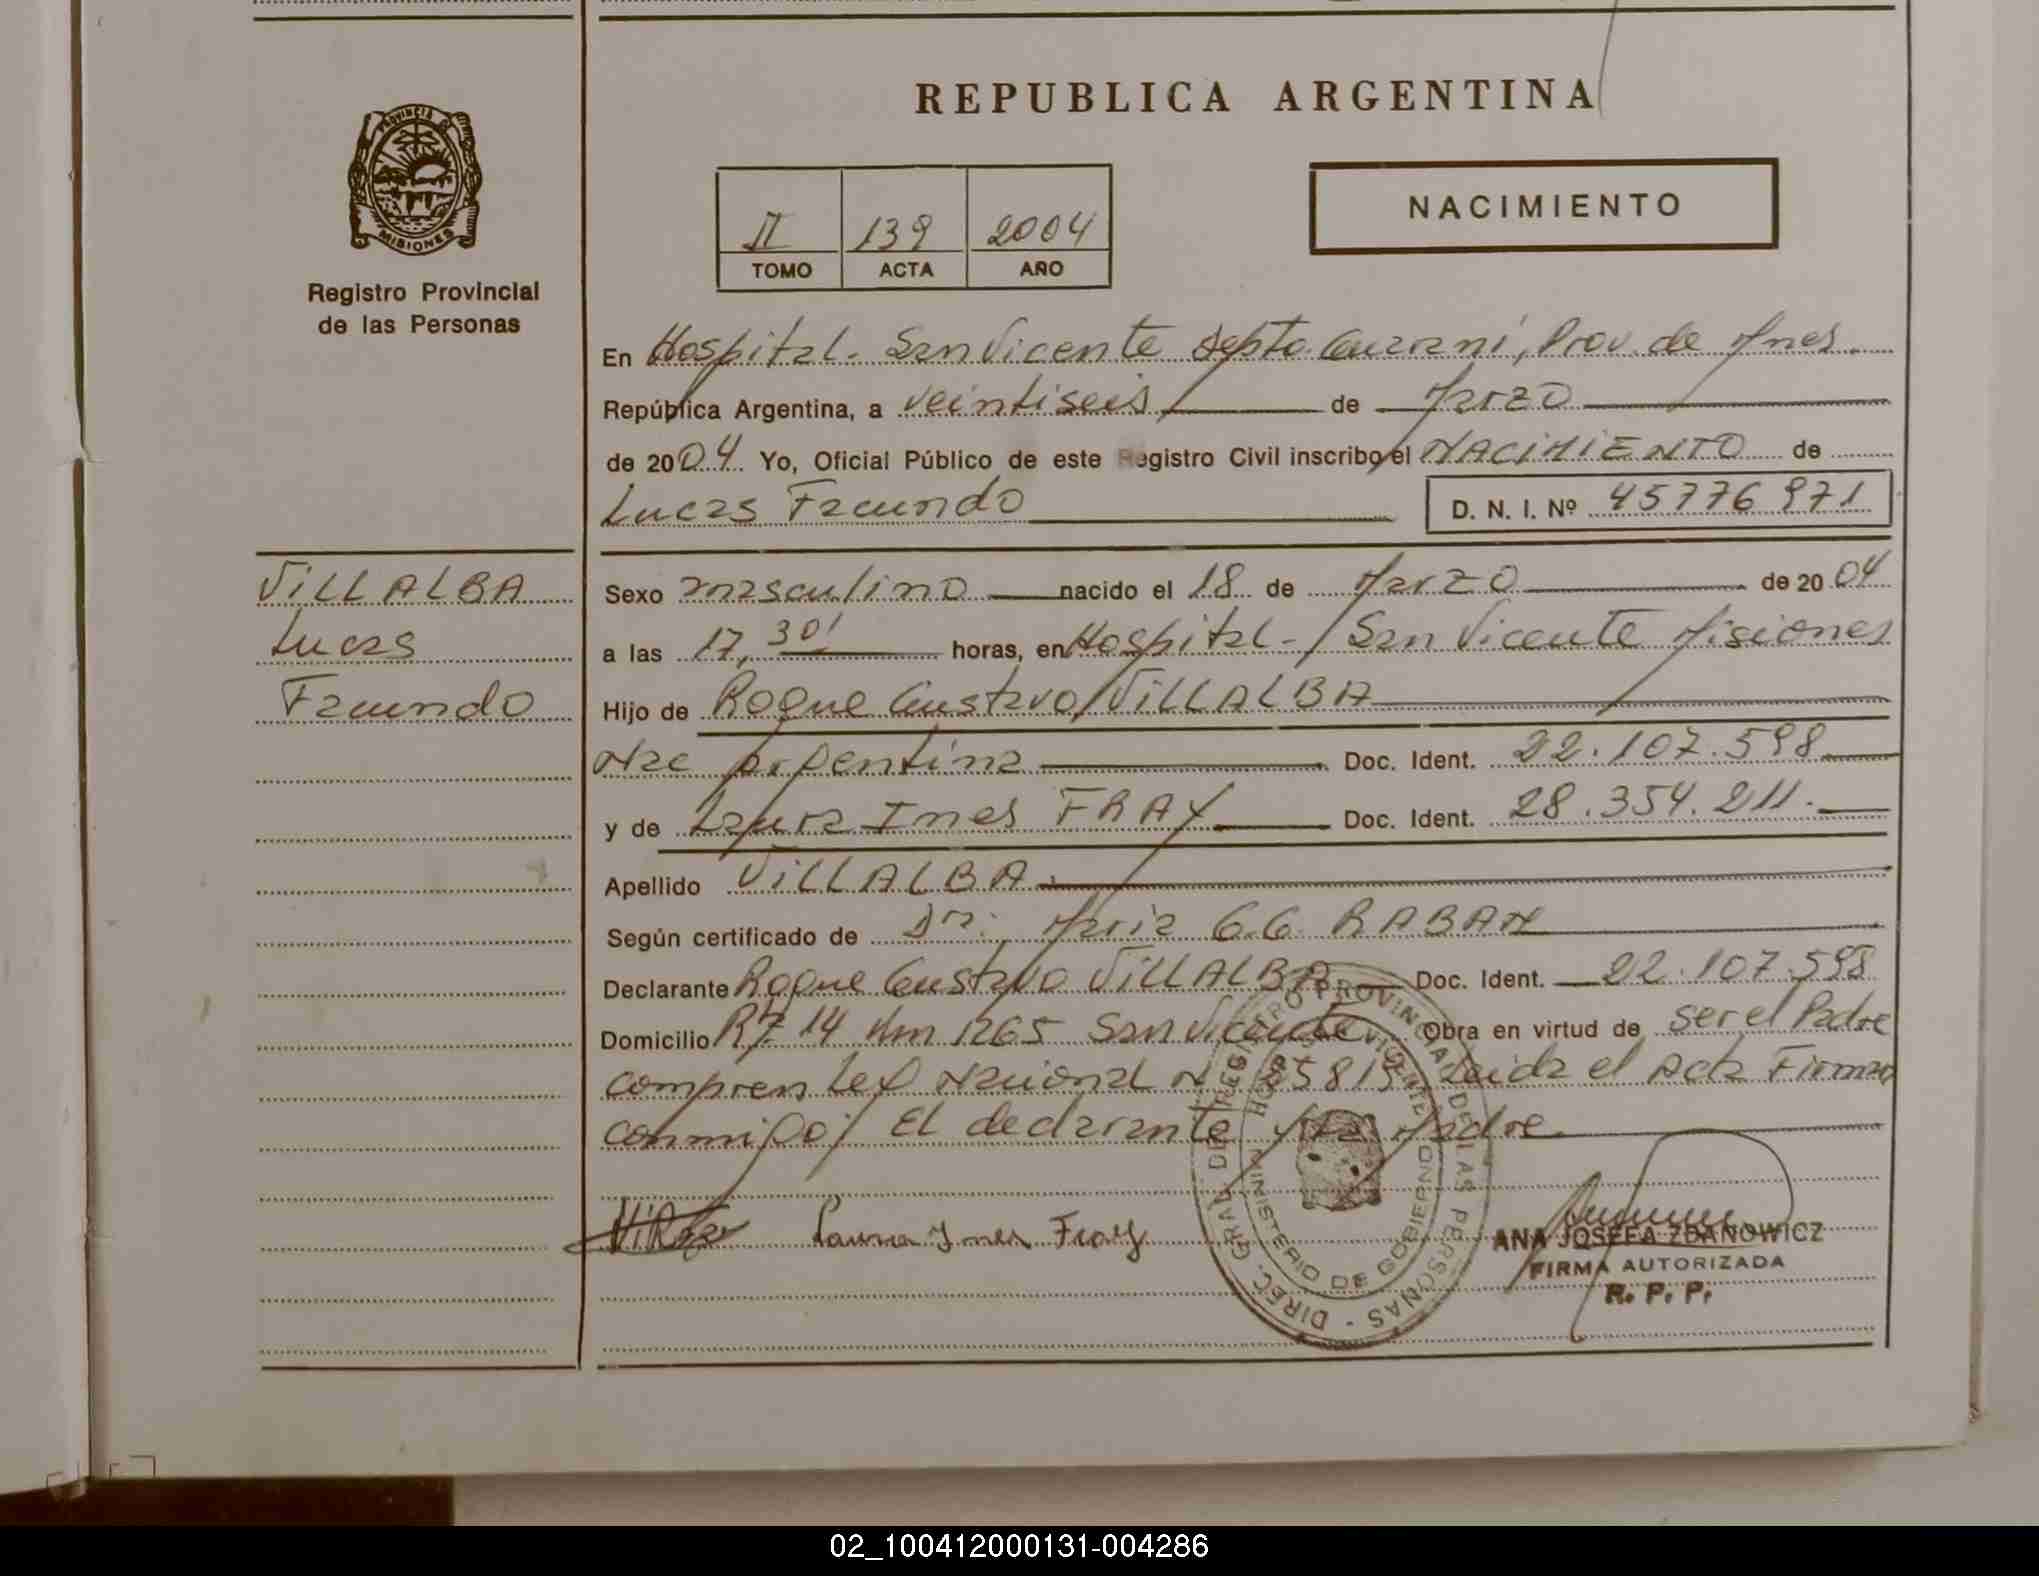 REPUBLICA ARGENTINA
PROVINCIA DE
MISIONES
Registro Provincial
de las Personas
II 139 2004
TOMO ACTA AÑO
NACIMIENTO
En Hospital - San Vicente Depto. Guarani, Prov. de Mnes.
República Argentina, a veintiseis de Marzo
de 2004. Yo, Oficial Público de este Registro Civil inscribo el NACIMIENTO de
Lucas Facundo
D. N. I. Nº 45776971
VILLALBA
Lucas
Facundo
Sexo masculino nacido el 18 de Marzo de 2004
a las 17,30' horas, en Hospital - San Vicente Misiones
Hijo de Roque Gustavo VILLALBA
Nac Argentina Doc. Ident. 22.107.598
y de Laura Ines FRAY Doc. Ident. 28.354.211.
Apellido VILLALBA.
Según certificado de Dra. Maria G.G. RABAN
Declarante Roque Gustavo VILLALBA Doc. Ident. 22.107.598
Domicilio 14 Km 1265 San Vicente. Obra en virtud de ser el Padre
Ley Nacional N 25819 Leida el Acta Firman
conmigo El declarante y la Madre
Laura Ines Fray
DIREC. GRAL. DEL REGISTRO PROVINCIAL DE LAS PERSONAS
MINISTERIO DE GOBIERNO
ANA JOSEFA ZDANOWICZ
FIRMA AUTORIZADA
R. P. P.
02_100412000131-004286